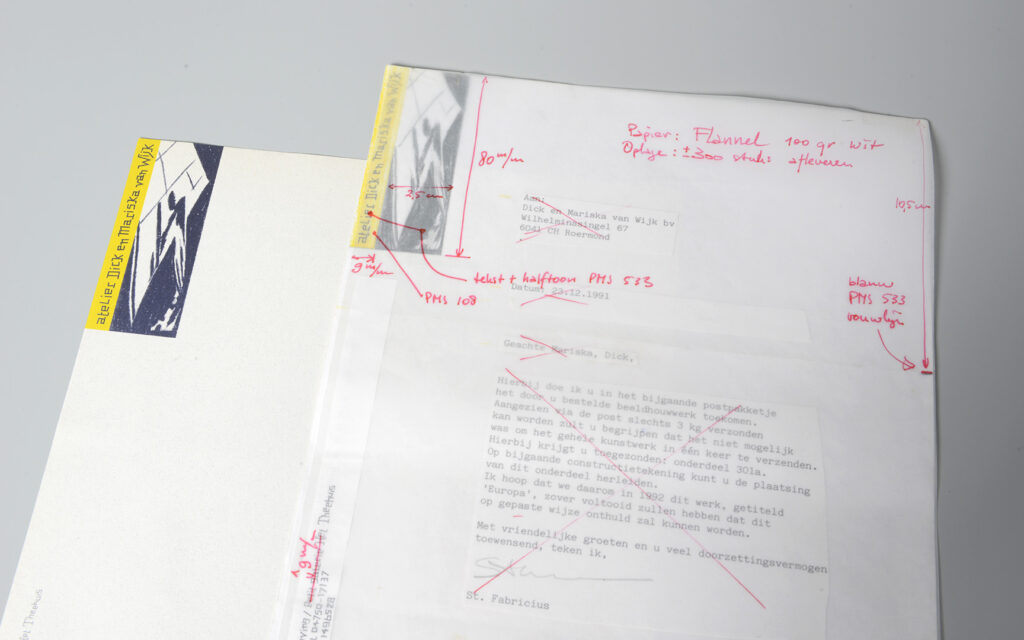 atelier Dick en Mariska van Wijk
atelier Dick en Mariska van Wijk
Papier: Flannel 100 gr wit
Oplage: ±300 stuks afleveren
80 m/m
2,5 cm
10,5 cm
9 m/m
tekst + halftoon PMS 533
PMS 108
blauw
PMS 533
vouwlijn
Aan:
Dick en Mariska van Wijk bv
Wilhelminasingel 67
6041 CH Roermond
Datum: 23.12.1991
Geachte Mariska, Dick,
Hierbij doe ik u in het bijgaande postpakketje
het door u bestelde beeldhouwwerk toekomen.
Aangezien via de post slechts 3 kg verzonden
kan worden zult u begrijpen dat het niet mogelijk
was om het gehele kunstwerk in één keer te verzenden.
Hierbij krijgt u toegezonden: onderdeel 301a.
Op bijgaande constructietekening kunt u de plaatsing
van dit onderdeel herleiden.
Ik hoop dat we daarom in 1992 dit werk, getiteld
'Europa', zover voltooid zullen hebben dat dit
op gepaste wijze onthuld zal kunnen worden.
Met vriendelijke groeten en u veel doorzettingsvermogen
toewensend, teken ik,
St. Fabricius
9 m/m
Theehuis
04750-17137
496528
Theehuis